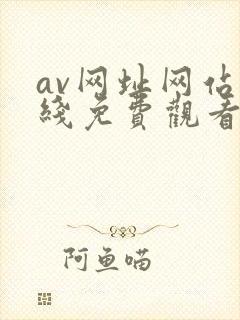 av网址网佔
綫免費觀看
阿鱼喵